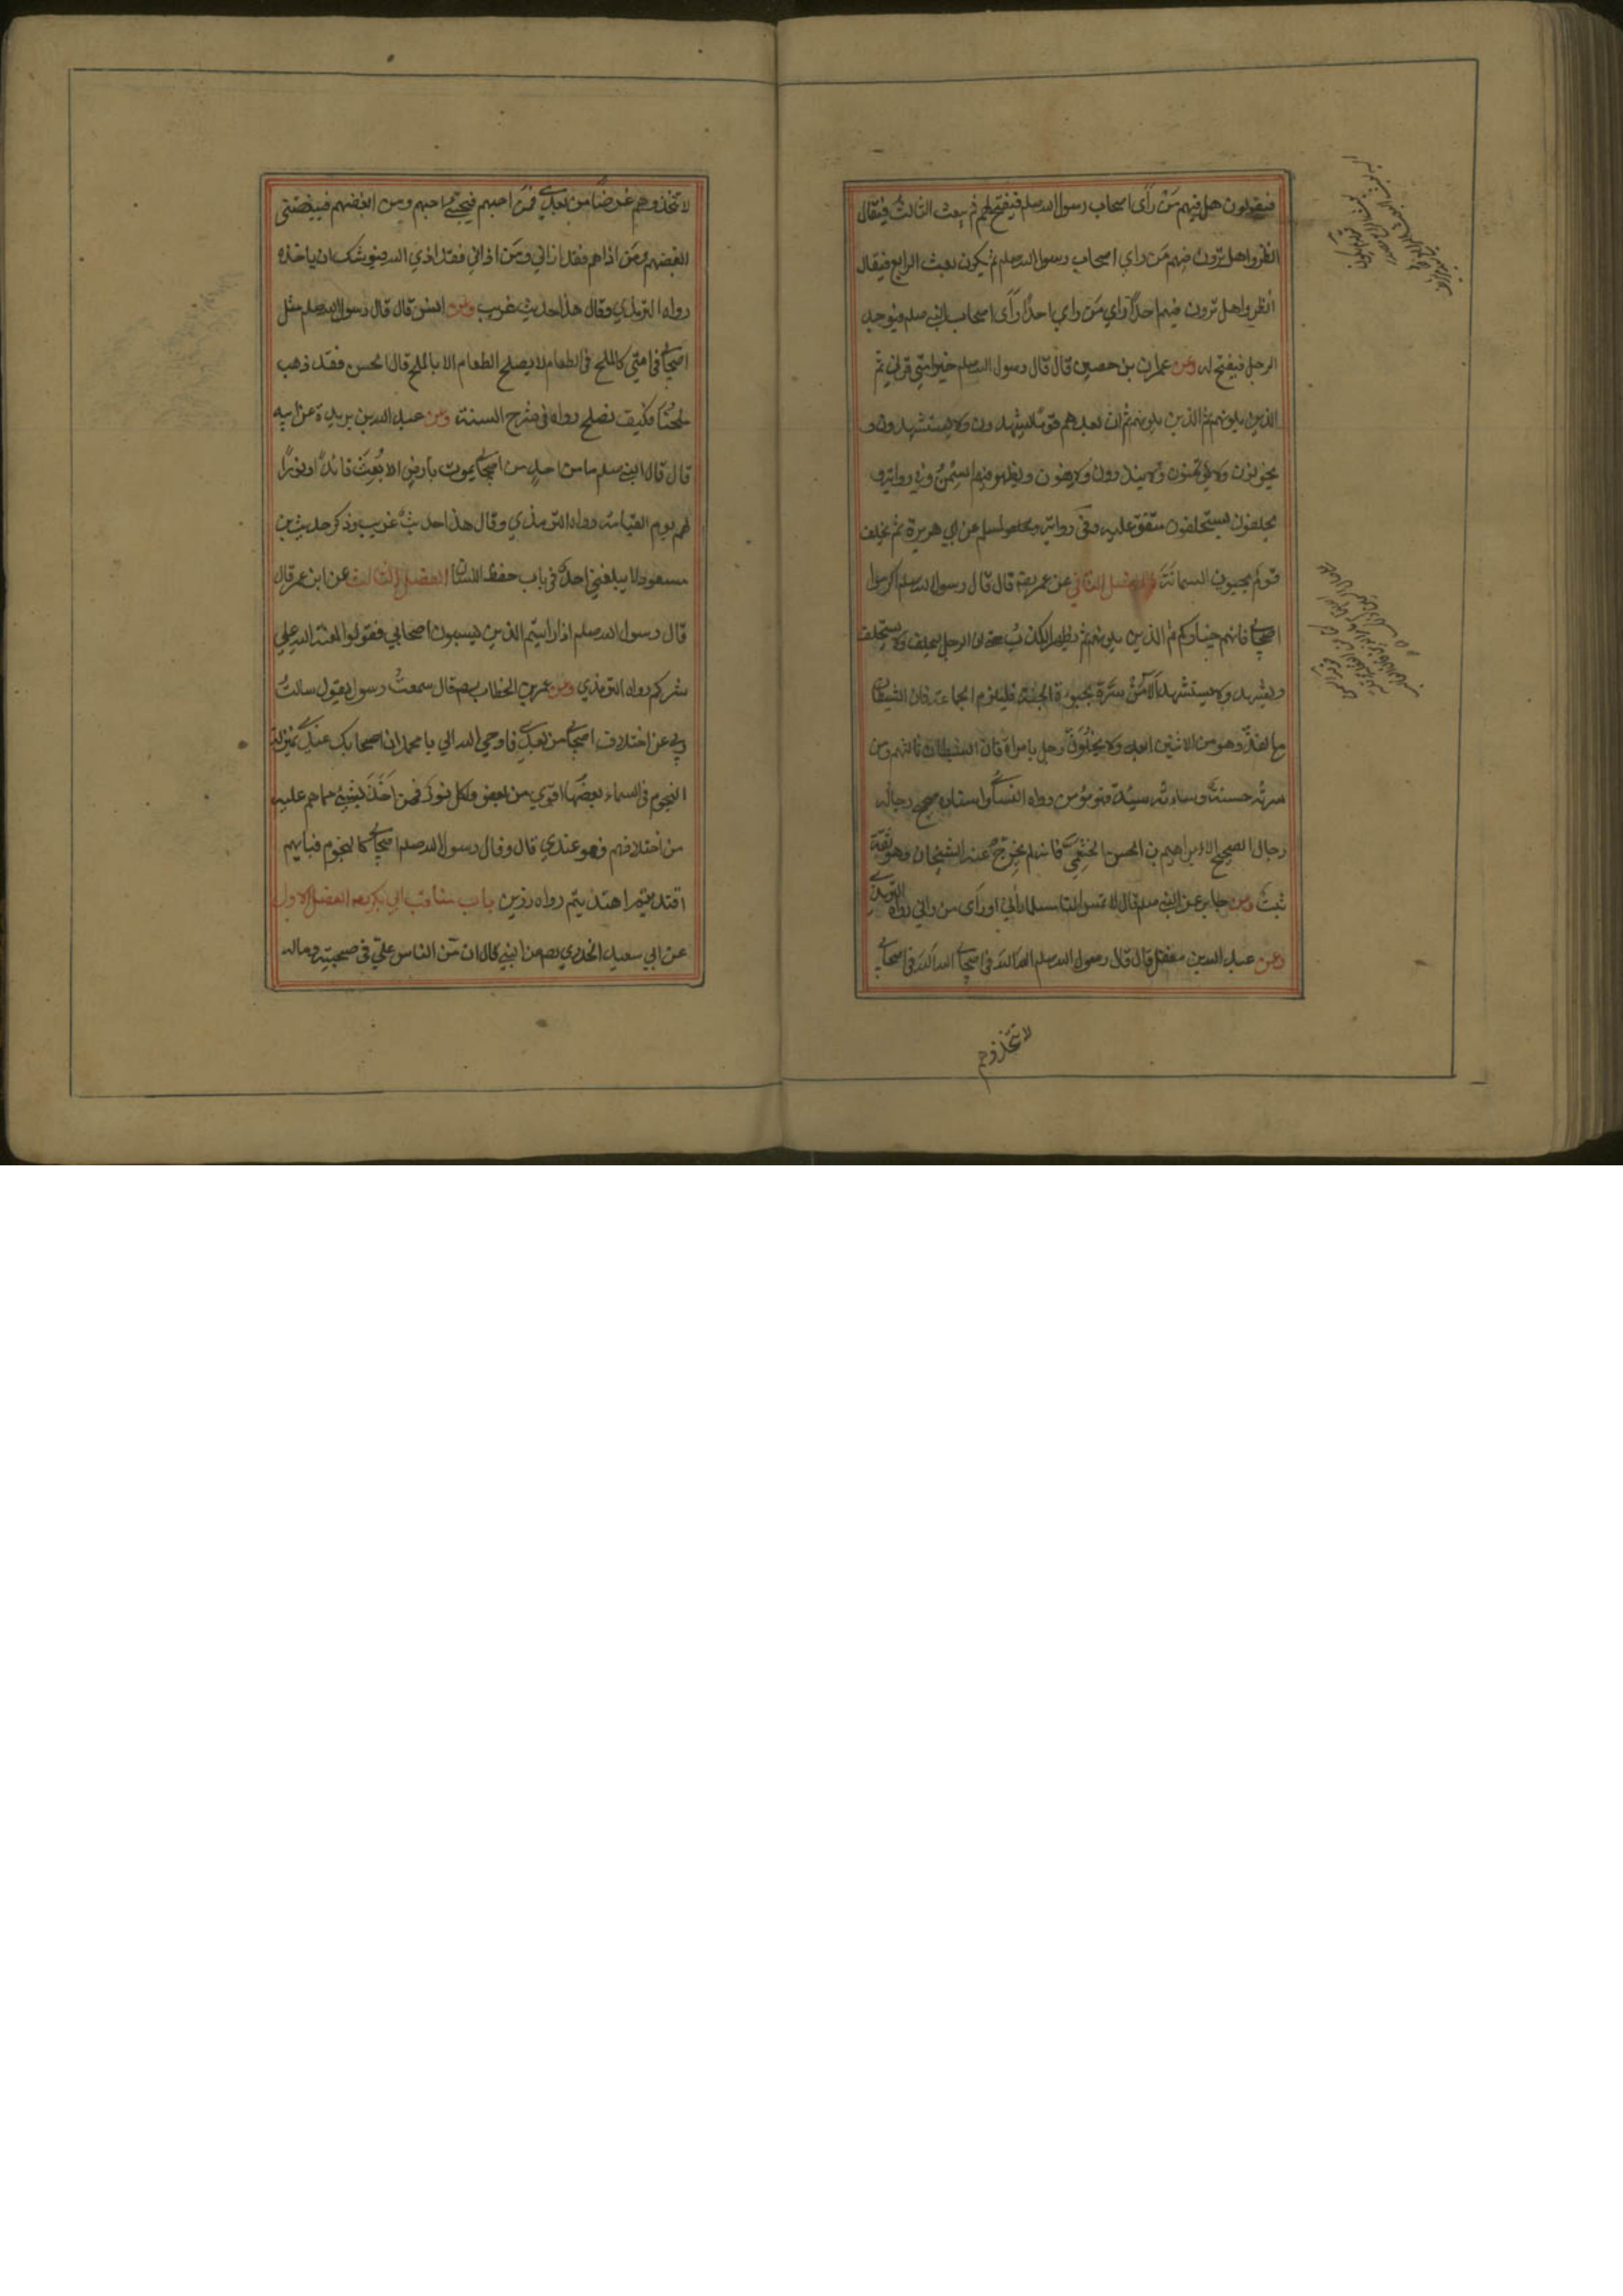 فيقولون هل فيهم من رأى اصحاب رسول الله صلم فيفتح لهم ثم يبعث الثالث فيقال
انظروا هل ترون فيهم من راي اصحاب رسول الله صلم ثم يكون بعث الرابع فيقال
انظروا هل ترون فيهم احدًا راي من راي احدًا رأى اصحاب النبي صلم فيوجد
الرجل فيفتح له وعن عمران بن حصين قال قال رسول الله صلم خير امتي قرني ثم
الذين يلونهم ثم الذين يلونهم ثم ان بعدهم قومًا يشهدون ولا يستشهدون و
يخونون ولا يؤتمنون وينذرون ولا يفون ويظهر فيهم السِّمَنُ وفي رواية و
يحلفون ولا يستحلفون متفق عليه وفي رواية لمسلم عن ابي هريرة ثم يخلف
قوم يحبون السمانة الفصل الثاني عن عمر رضه قال قال رسول الله صلم اكرموا
اصحابي فانهم خياركم ثم الذين يلونهم ثم يظهر الكذب حتى ان الرجل ليحلف ولا يستحلف
ويشهد ولا يستشهد ألا من سره بحبوحة الجنة فليلزم الجماعة فان الشيطان
مع الفذ وهو من الاثنين ابعد ولا يخلون رجل بامراة فان الشيطان ثالثهم ومن
سرته حسنته وساءته سيئته فهو مؤمن رواه النسائي واسناده صحيح ورجاله
رجال الصحيح الا ابراهيم بن الحسن الخثعمي فانه لم يخرج عنه الشيخان وهو ثقة
ثبت وعن جابر عن النبي صلم قال لا تمس النار مسلما رأني او رأى من راني رواه الترمذي
وعن عبد الله بن مغفل قال قال رسول الله صلم الله الله في اصحابي الله الله في اصحابي
لا تتخذوهم
لا تتخذوهم غرضًا من بعدي فمن احبهم فبحبي احبهم ومن ابغضهم فببغضي
ابغضهم ومن اذاهم فقد اذاني ومن اذاني فقد اذي الله فيوشك ان ياخذه
رواه الترمذي وقال هذا حديث غريب وعن انس قال قال رسول الله صلم مثل
اصحابي في امتي كالملح في الطعام لا يصلح الطعام الا بالملح قال الحسن فقد ذهب
ملحنا فكيف نصلح رواه في شرح السنة وعن عبد الله بن بريدة عن ابيه
قال قال النبي صلم ما من احد من اصحابي يموت بارض الا بُعِثَ قائدًا ونورًا
لهم يوم القيامة رواه الترمذي وقال هذا حديث غريب وذكر حديث بن
مسعود لا يبلغني احد في باب حفظ اللسان الفصل الثالث عن ابن عمر قال
قال رسول الله صلم اذا رايتم الذين يسبون اصحابي فقولوا لعنة الله علي
شركم رواه الترمذي وعن عمر بن الخطاب رضه قال سمعت رسول يقول سالت
ربي عن اختلاف اصحابي من بعدي فاوحي الله الي يا محمد ان اصحابك عندي بمنزلة
النجوم في السماء بعضها اقوي من بعض ولكل نور فمن اخذ بشيء مما هم عليه
من اختلافهم فهو عندي قال وقال رسول الله صلم اصحابي كالنجوم فبايهم
اقتديتم اهتديتم رواه رزين باب مناقب ابي بكر رضه الفصل الاول
عن ابي سعيد الخدري رضه عن النبي قال ان من الناس علي في صحبته وماله